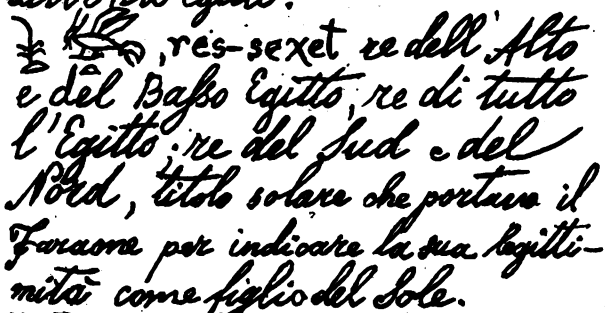 , res-sexet re dell'Alto
e del Basso Egitto, re di tutto
l'Egitto; re del Sud e del
Nord, titolo solare che portava il
Faraone per indicare la sua legitti-
mità come figlio del Sole.